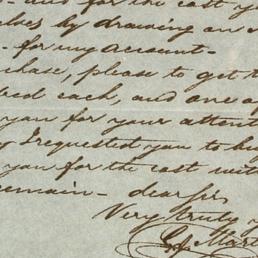 and for the cost y
elves by drawing on
- for my account -
chase, please to get t
bed each, and one of
you for your atten
y I requested you to bu
you for the cost with
remain - dear Sir,
Very truly y
G. Mart